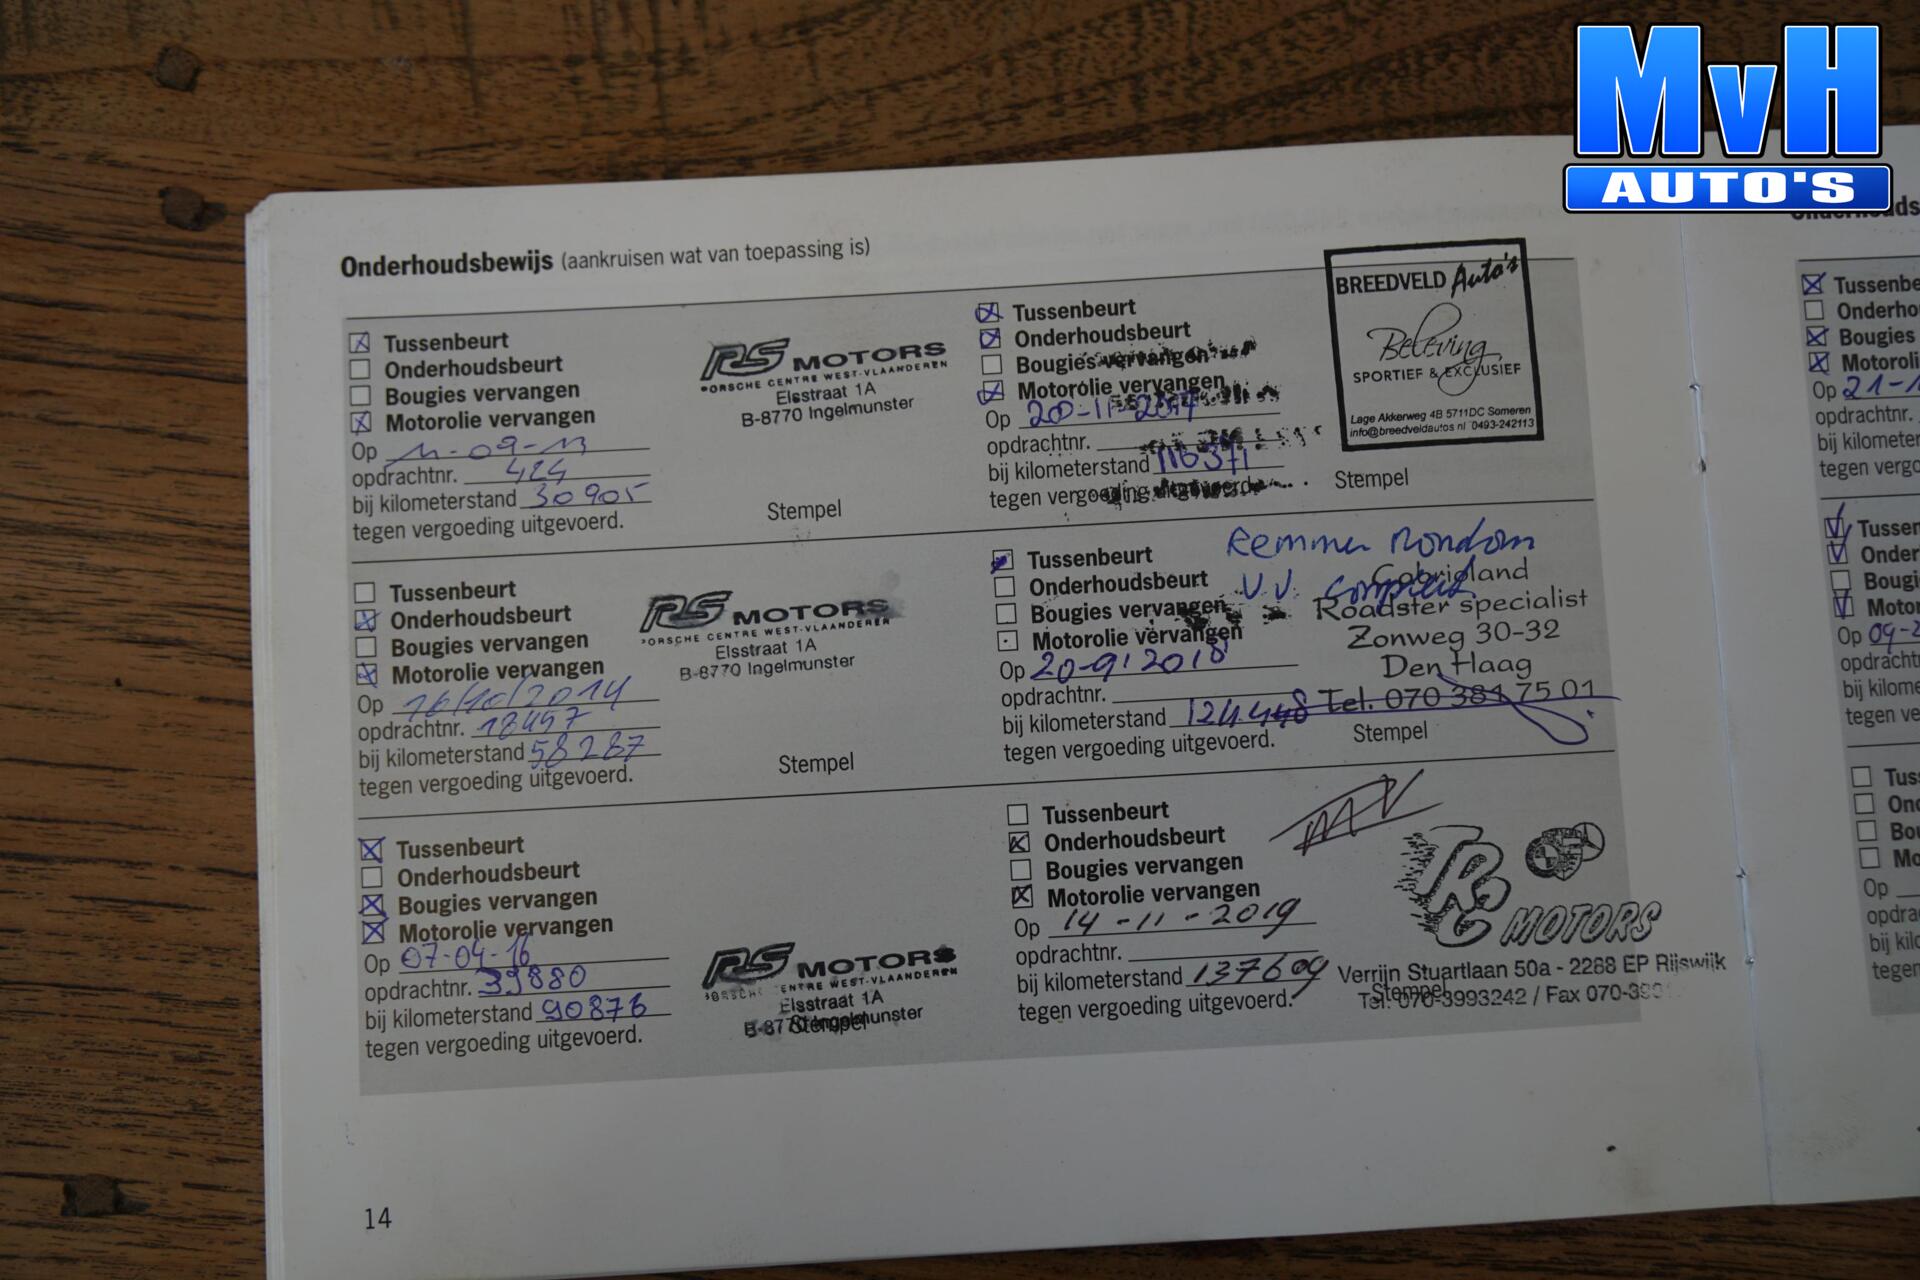 MvH
AUTO'S
Onderhoudsbewijs (aankruisen wat van toepassing is)
Tussenbeurt
Onderhoudsbeurt
Bougies vervangen
Motorolie vervangen
Op 11-09-13
opdrachtnr. 424
bij kilometerstand 30905
tegen vergoeding uitgevoerd.
RS MOTORS
PORSCHE CENTRE WEST-VLAANDEREN
Elsstraat 1A
B-8770 Ingelmunster
Stempel
Tussenbeurt
Onderhoudsbeurt
Bougies vervangen
Motorolie vervangen
Op 16/10/2014
opdrachtnr. 18497
bij kilometerstand 58287
tegen vergoeding uitgevoerd.
RS MOTORS
PORSCHE CENTRE WEST-VLAANDEREN
Elsstraat 1A
B-8770 Ingelmunster
Stempel
Tussenbeurt
Onderhoudsbeurt
Bougies vervangen
Motorolie vervangen
Op 07-04-16
opdrachtnr. 39880
bij kilometerstand 90876
tegen vergoeding uitgevoerd.
RS MOTORS
PORSCHE CENTRE WEST-VLAANDEREN
Elsstraat 1A
B-8770 Ingelmunster
Stempel
Tussenbeurt
Onderhoudsbeurt
Bougies vervangen
Motorolie vervangen
Op 20-11-2017
opdrachtnr.
bij kilometerstand 116371
tegen vergoeding uitgevoerd
BREEDVELD Auto's
Beleving
SPORTIEF & EXCLUSIEF
Lage Akkerweg 4B 5711DC Someren
info@breedveldautos.nl 0493-242113
Stempel
Tussenbeurt
Onderhoudsbeurt
Bougies vervangen
Motorolie vervangen
Op 20-9-2018
opdrachtnr.
bij kilometerstand 124.448
tegen vergoeding uitgevoerd.
Remmen Rondom
V.V. compleet
Cabrioland
Roadster specialist
Zonweg 30-32
Den Haag
Tel. 070 381 75 01
Stempel
Tussenbeurt
Onderhoudsbeurt
Bougies vervangen
Motorolie vervangen
Op 14-11-2019
opdrachtnr.
bij kilometerstand 137609
tegen vergoeding uitgevoerd.
MOTORS
Verrijn Stuartlaan 50a - 2288 EP Rijswijk
Tel. 070-3993242 / Fax 070-399
Stempel
14
Onderhouds
Tussenbe
Onderho
Bougies
Motoroli
Op 21-1
opdrachtnr.
bij kilometer
tegen vergo
Tussen
Onder
Bougi
Motor
Op 09-2
opdracht
bij kilome
tegen ve
Tus
Ond
Bou
Mo
Op
opdra
bij kil
tegen